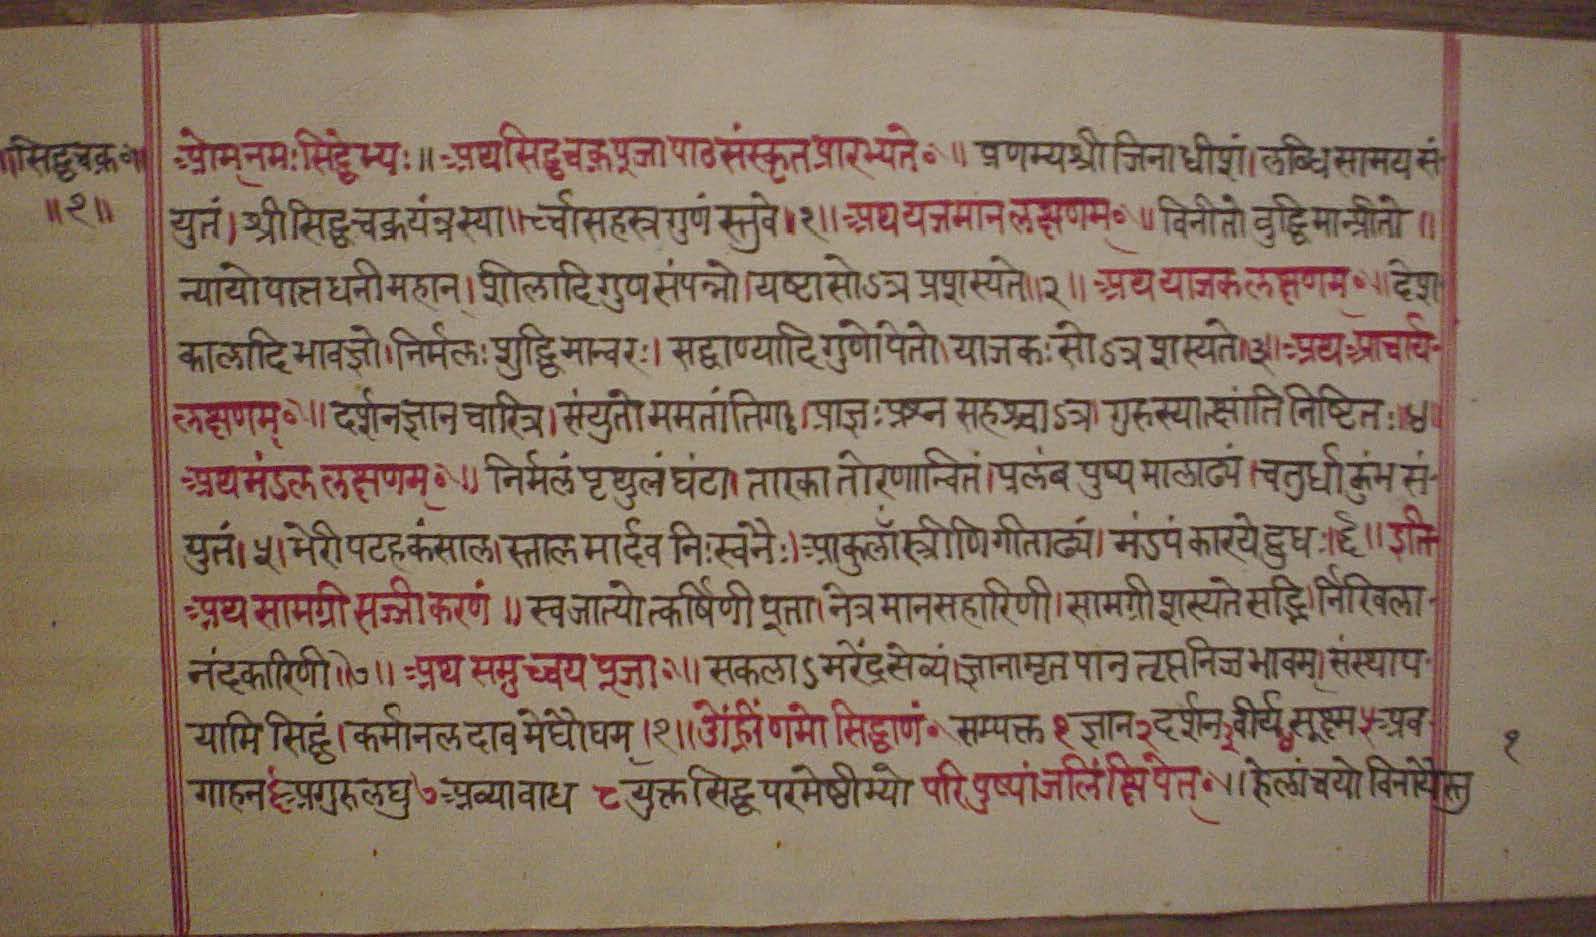 ॥सिद्धचक्र०॥
॥१॥
ओम्नमःसिद्धेभ्यः॥ अथसिद्धचक्रपूजापाठसंस्कृतप्रारभ्यते०॥ प्रणम्यश्रीजिनाधीशं।लब्धिसामयसं-
युतं।श्रीसिद्धचक्रयंत्रस्या॥र्च्चासहस्त्रगुणंस्तुवे।१॥अथयजमानलक्षणम्०॥विनीतोवुद्धिमान्प्रीतो॥
न्यायोपात्तधनीमहान्।शीलादिगुणसंपन्नो।यष्टासोऽत्रप्रशस्यते॥२॥अथयाजकलक्षणम्०॥देश
कालादिभावज्ञो।निर्मलःशुद्धिमान्वरः।सद्वाण्यादिगुणोपेतो।याजकःसोऽत्रशस्यते।३॥अथआचार्य-
लक्षणम्०॥दर्शनज्ञानचारित्र।संयुतोममतांतिगः।प्राज्ञःप्रश्नसहश्चाऽत्र।गुरुस्यात्क्षांतिनिष्टितः।४॥
अथमंडललक्षणम्०॥निर्मलंपृथुलंघंटा।तारकातोरणान्वितं।प्रलंबपुष्पमालाढ्यं।चतुर्धाकुंभसं-
युतं।५।भेरीपटहकंसाल।स्तालमार्दवनिःस्वनैः।आकुलॉस्त्रीणिगीताढ्यं।मंडपंकारयेद्बुधः।६॥इति-
अथसामग्रीसज्जीकरणं॥स्वजात्योत्कर्षिणीपूता।नेत्रमानसहारिणी।सामग्रीशस्यतेसद्भि।र्निखिला-
नंदकारिणी॥७॥अथसमुच्चयपूजा०॥सकलाऽमरेंद्रसेव्यं।ज्ञानामृतपानतृप्तनिजभावम्।संस्थाप-
यामिसिद्धं।कर्मानलदावमेघौघम्।१॥ओंह्रींणमोसिद्धाणं०सम्यक्त१ज्ञान२दर्शन३वीर्य४सूक्ष्म५अव-
गाहन६अगुरुलघु७अव्यावाध८युक्तसिद्धपरमेष्ठीभ्योपरिपुष्पांजलिंक्षिपेत्०॥
१